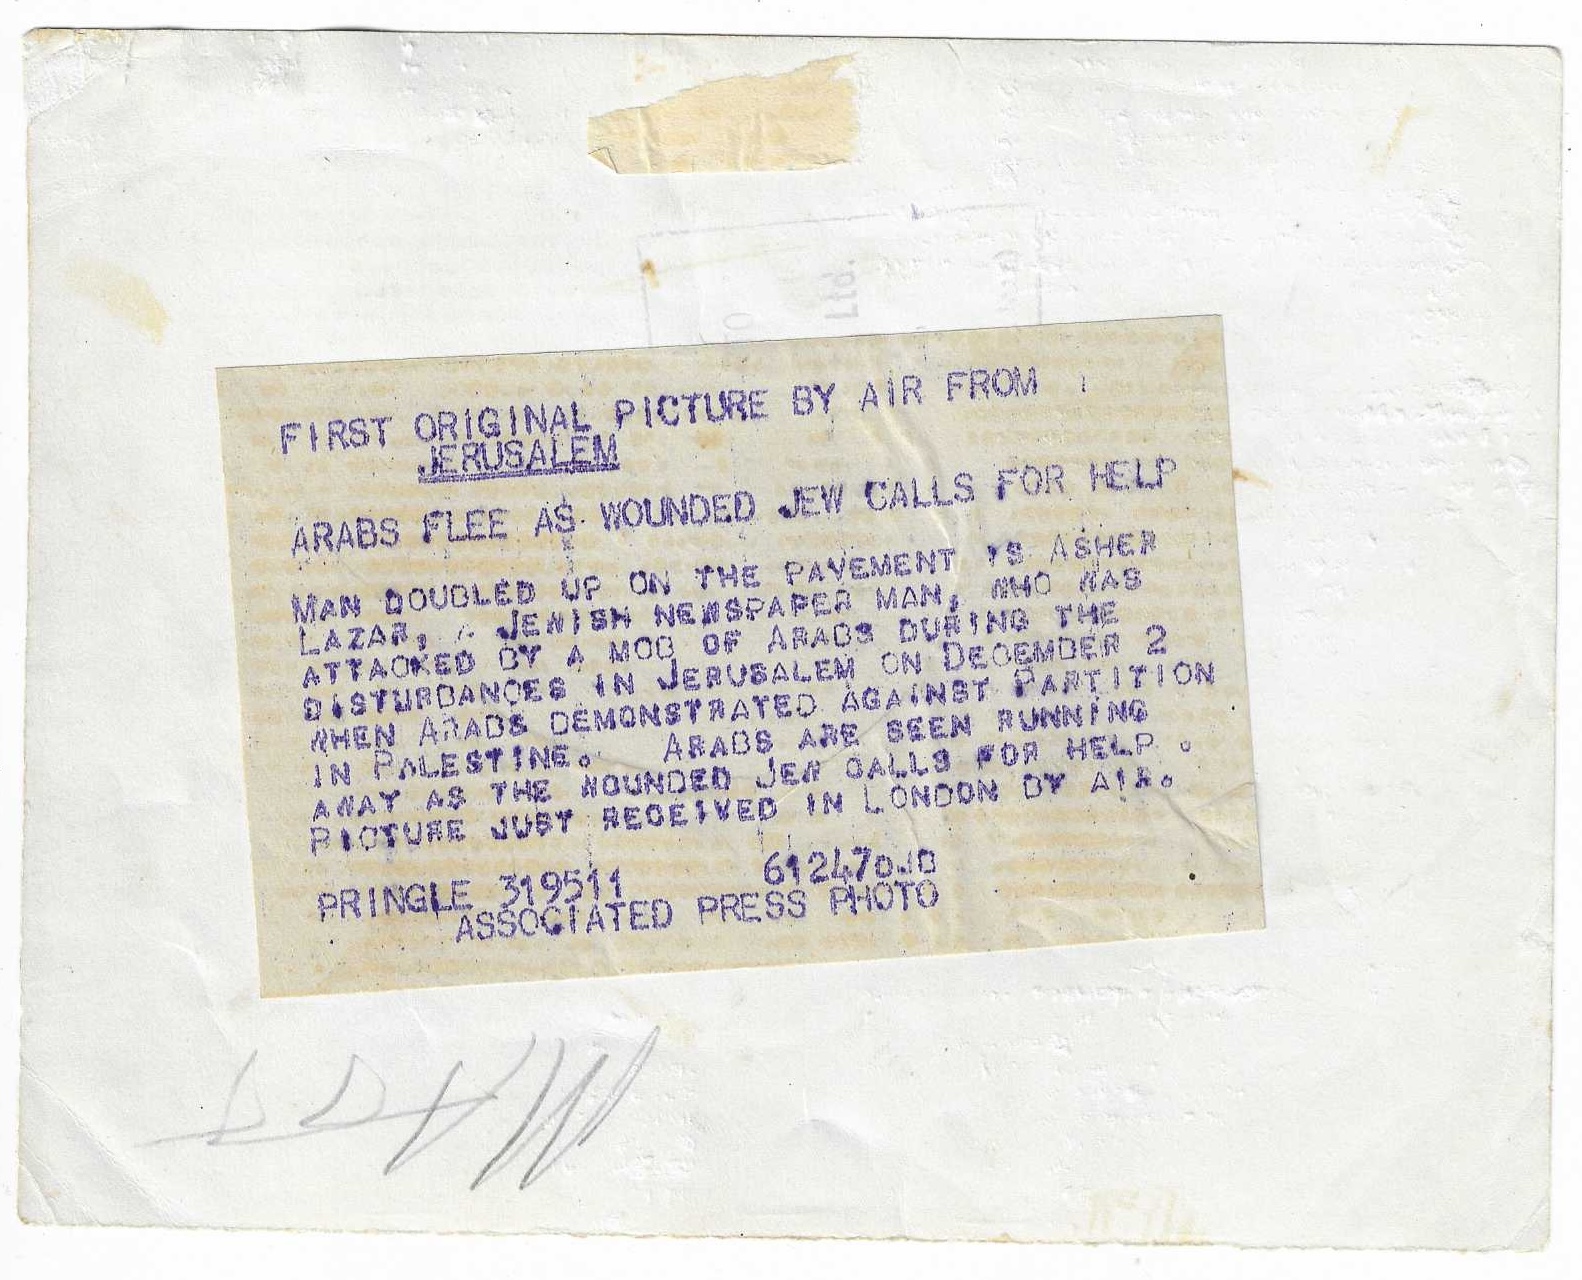 FIRST ORIGINAL PICTURE BY AIR FROM
JERUSALEM
ARABS FLEE AS WOUNDED JEW CALLS FOR HELP
MAN DOUBLED UP ON THE PAVEMENT IS ASHER
LAZAR, A JEWISH NEWSPAPER MAN, WHO WAS
ATTACKED BY A MOB OF ARABS DURING THE
DISTURBANCES IN JERUSALEM ON DECEMBER 2
WHEN ARABS DEMONSTRATED AGAINST PARTITION
IN PALESTINE. ARABS ARE SEEN RUNNING
AWAY AS THE WOUNDED JEW CALLS FOR HELP.
PICTURE JUST RECEIVED IN LONDON BY AIR.
PRINGLE 319511 61247DJB
ASSOCIATED PRESS PHOTO